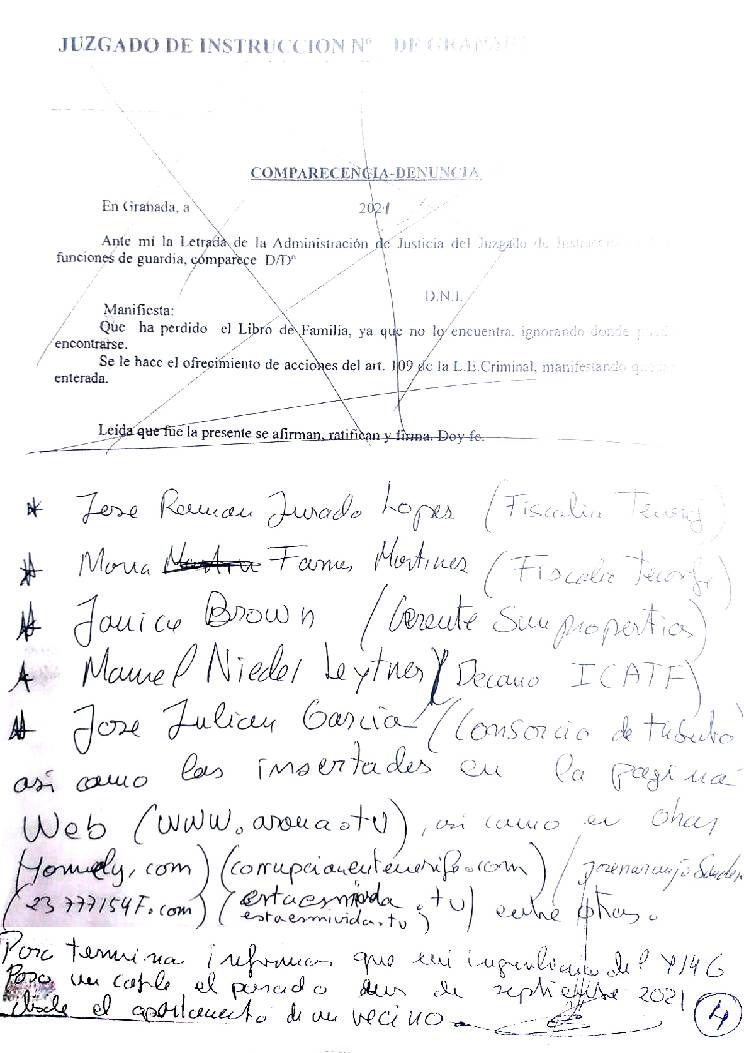 JUZGADO DE INSTRUCCION Nº DE GRANADA
COMPARECENCIA-DENUNCIA
En Granada, a 2021
Ante mí la Letrada de la Administración de Justicia del Juzgado de
funciones de guardia, comparece D/Dª
D.N.I.
Manifiesta:
Que ha perdido el Libro de Familia, ya que no lo encuentra, ignorando donde
encontrarse.
Se le hace el ofrecimiento de acciones del art. 109 de la L.E.Criminal, manifestando
enterada.
Leída que fue la presente se afirman, ratifican y firma. Doy fe.
* Jose Raman Jurado Lopes (Fiscalia
* Maria Farnes Martines (Fiscalia
* Janice Brown (Gerente Sun properties)
* Manuel Niedel Leytner (Decano ICATF)
* Jose Julian Garcia (Consorcio de tributo
asi como las insertades en la pagina
Web (www.arona.tv), asi como en otras
Homely.com) (corrupcionentenerife.com) (
(23777154F.com) (estaesmivida.tv)
estaesmivida.tv) entre otras.
Para terminar informar que mi
Paso un cable el pasado de septiembre 2021
desde el apartamento de un vecino.
4